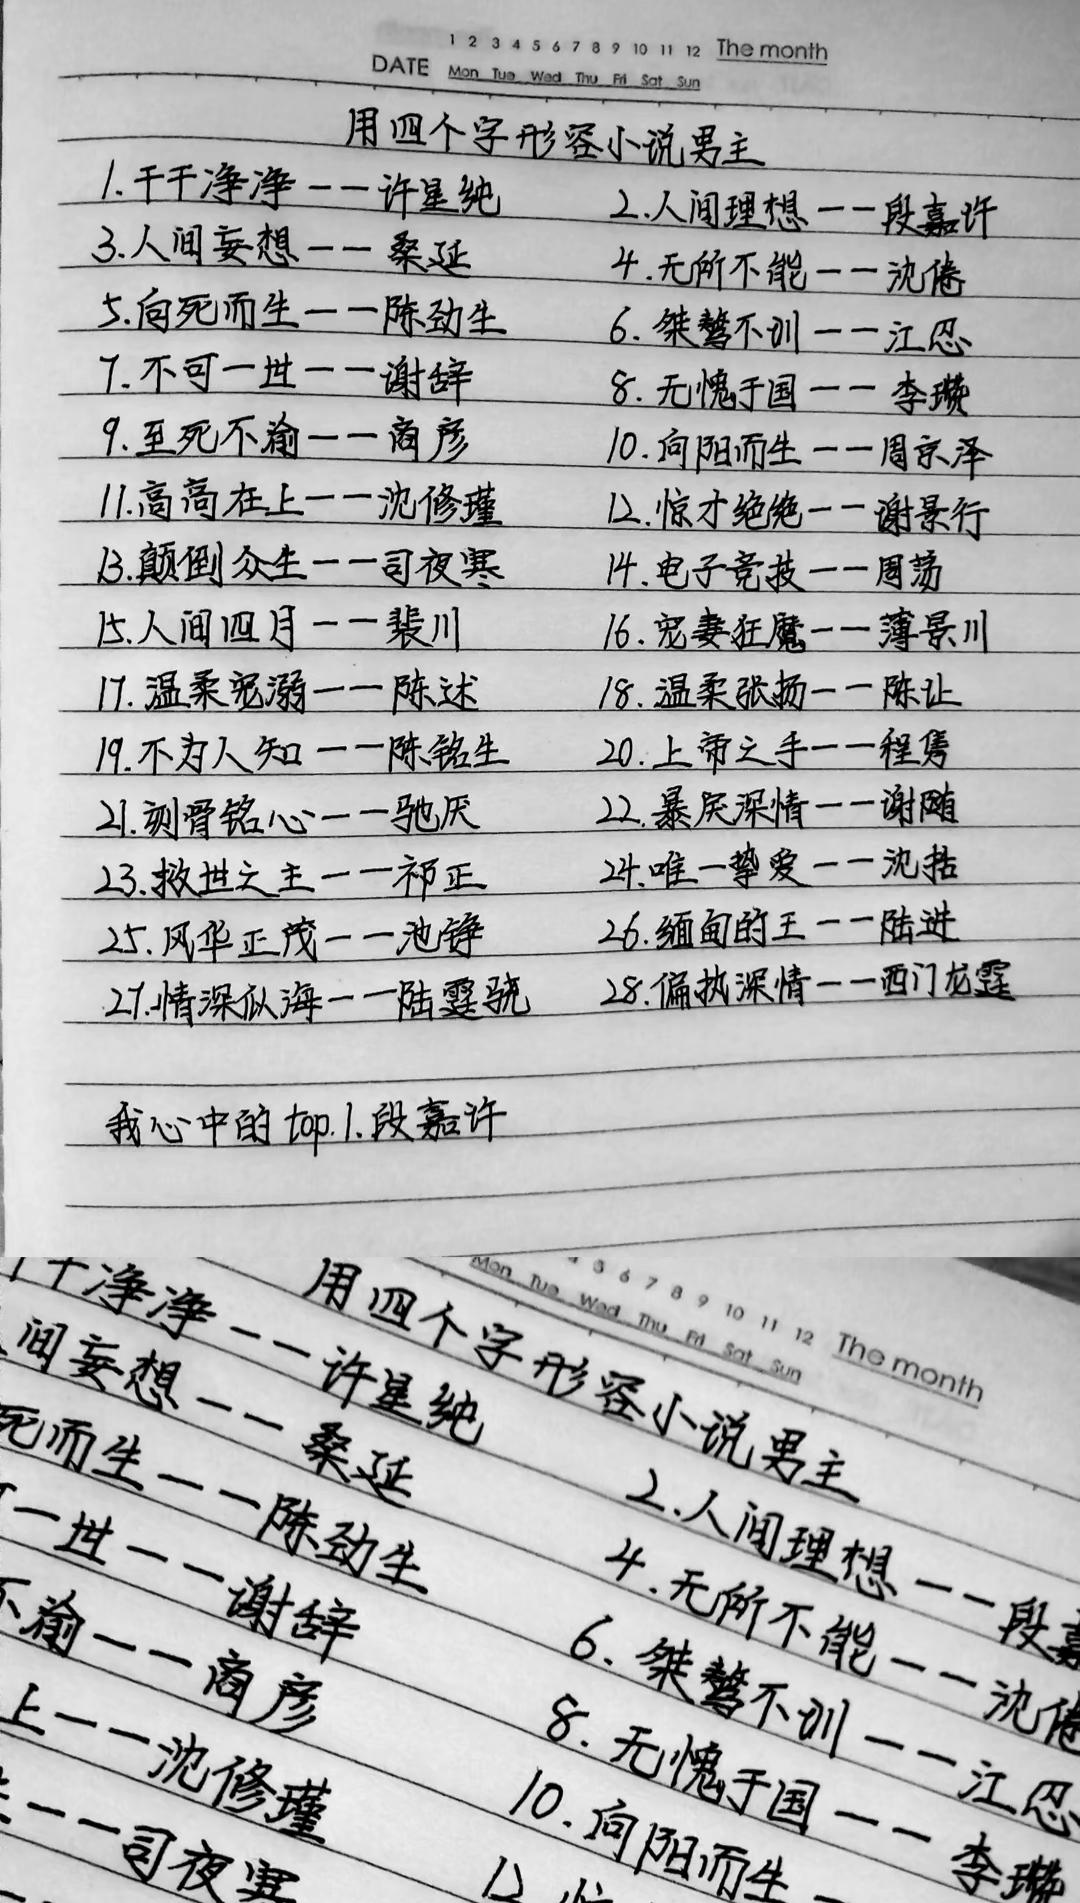 1 2 3 4 5 6 7 8 9 10 11 12 The month
DATE Mon Tue Wed Thu Fri Sat Sun
用四个字形容小说男主
1.干干净净——许星纯 2.人间理想——段嘉许
3.人间妄想——桑延 4.无所不能——沈倦
5.向死而生——陈劲生 6.桀骜不训——江忍
7.不可一世——谢辞 8.无愧于国——李瓒
9.至死不渝——商彦 10.向阳而生——周京泽
11.高高在上——沈修瑾 12.惊才绝绝——谢景行
13.颠倒众生——司夜寒 14.电子竞技——周荡
15.人间四月——裴川 16.宠妻狂魔——薄景川
17.温柔宠溺——陈述 18.温柔张扬——陈让
19.不为人知——陈铭生 20.上帝之手——程隽
21.刻骨铭心——驰厌 22.暴戾深情——谢随
23.救世之主——祁正 24.唯一挚爱——沈括
25.风华正茂——池铮 26.缅甸的王——陆进
27.情深似海——陆霆骁 28.偏执深情——西门龙霆
我心中的top.1.段嘉许
4 5 6 7 8 9 10 11 12 The month
Mon Tue Wed Thu Fri Sat Sun
用四个字形容小说男主
干净净——许星纯 2.人间理想——段嘉
间妄想——桑延 4.无所不能——沈倦
死而生——陈劲生 6.桀骜不训——江忍
一世——谢辞 8.无愧于国——李瓒
不渝——商彦 10.向阳而生
上——沈修瑾 12.惊
——司夜寒